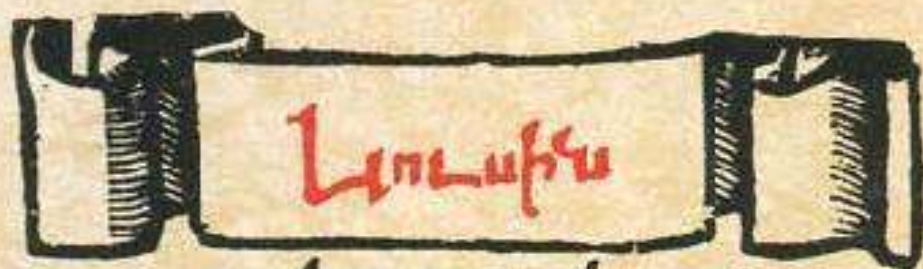 Լյուսին